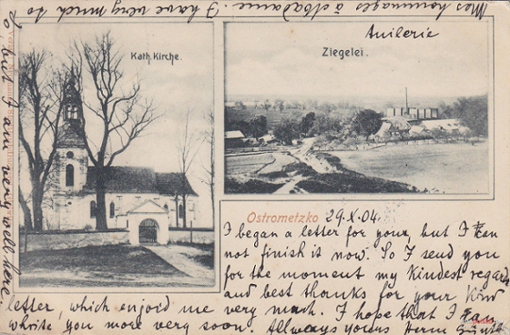 Mes hommages à Madame. I have very much to
do, but I am very well here.
Kath. Kirche.
Ziegelei.
Ostrometzko 29.X.04.
I began a letter for your, but I can
not finish it now. So I send you
for the moment my kindest regards
and best thanks for your kind
letter, which enjoid me very much. I hope that I can
whrite you more very soon. Allways yours